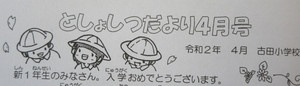 としょしつだより4月号
令和2年 4月 古田小学校
新1年生のみなさん。入学おめでとうございます。